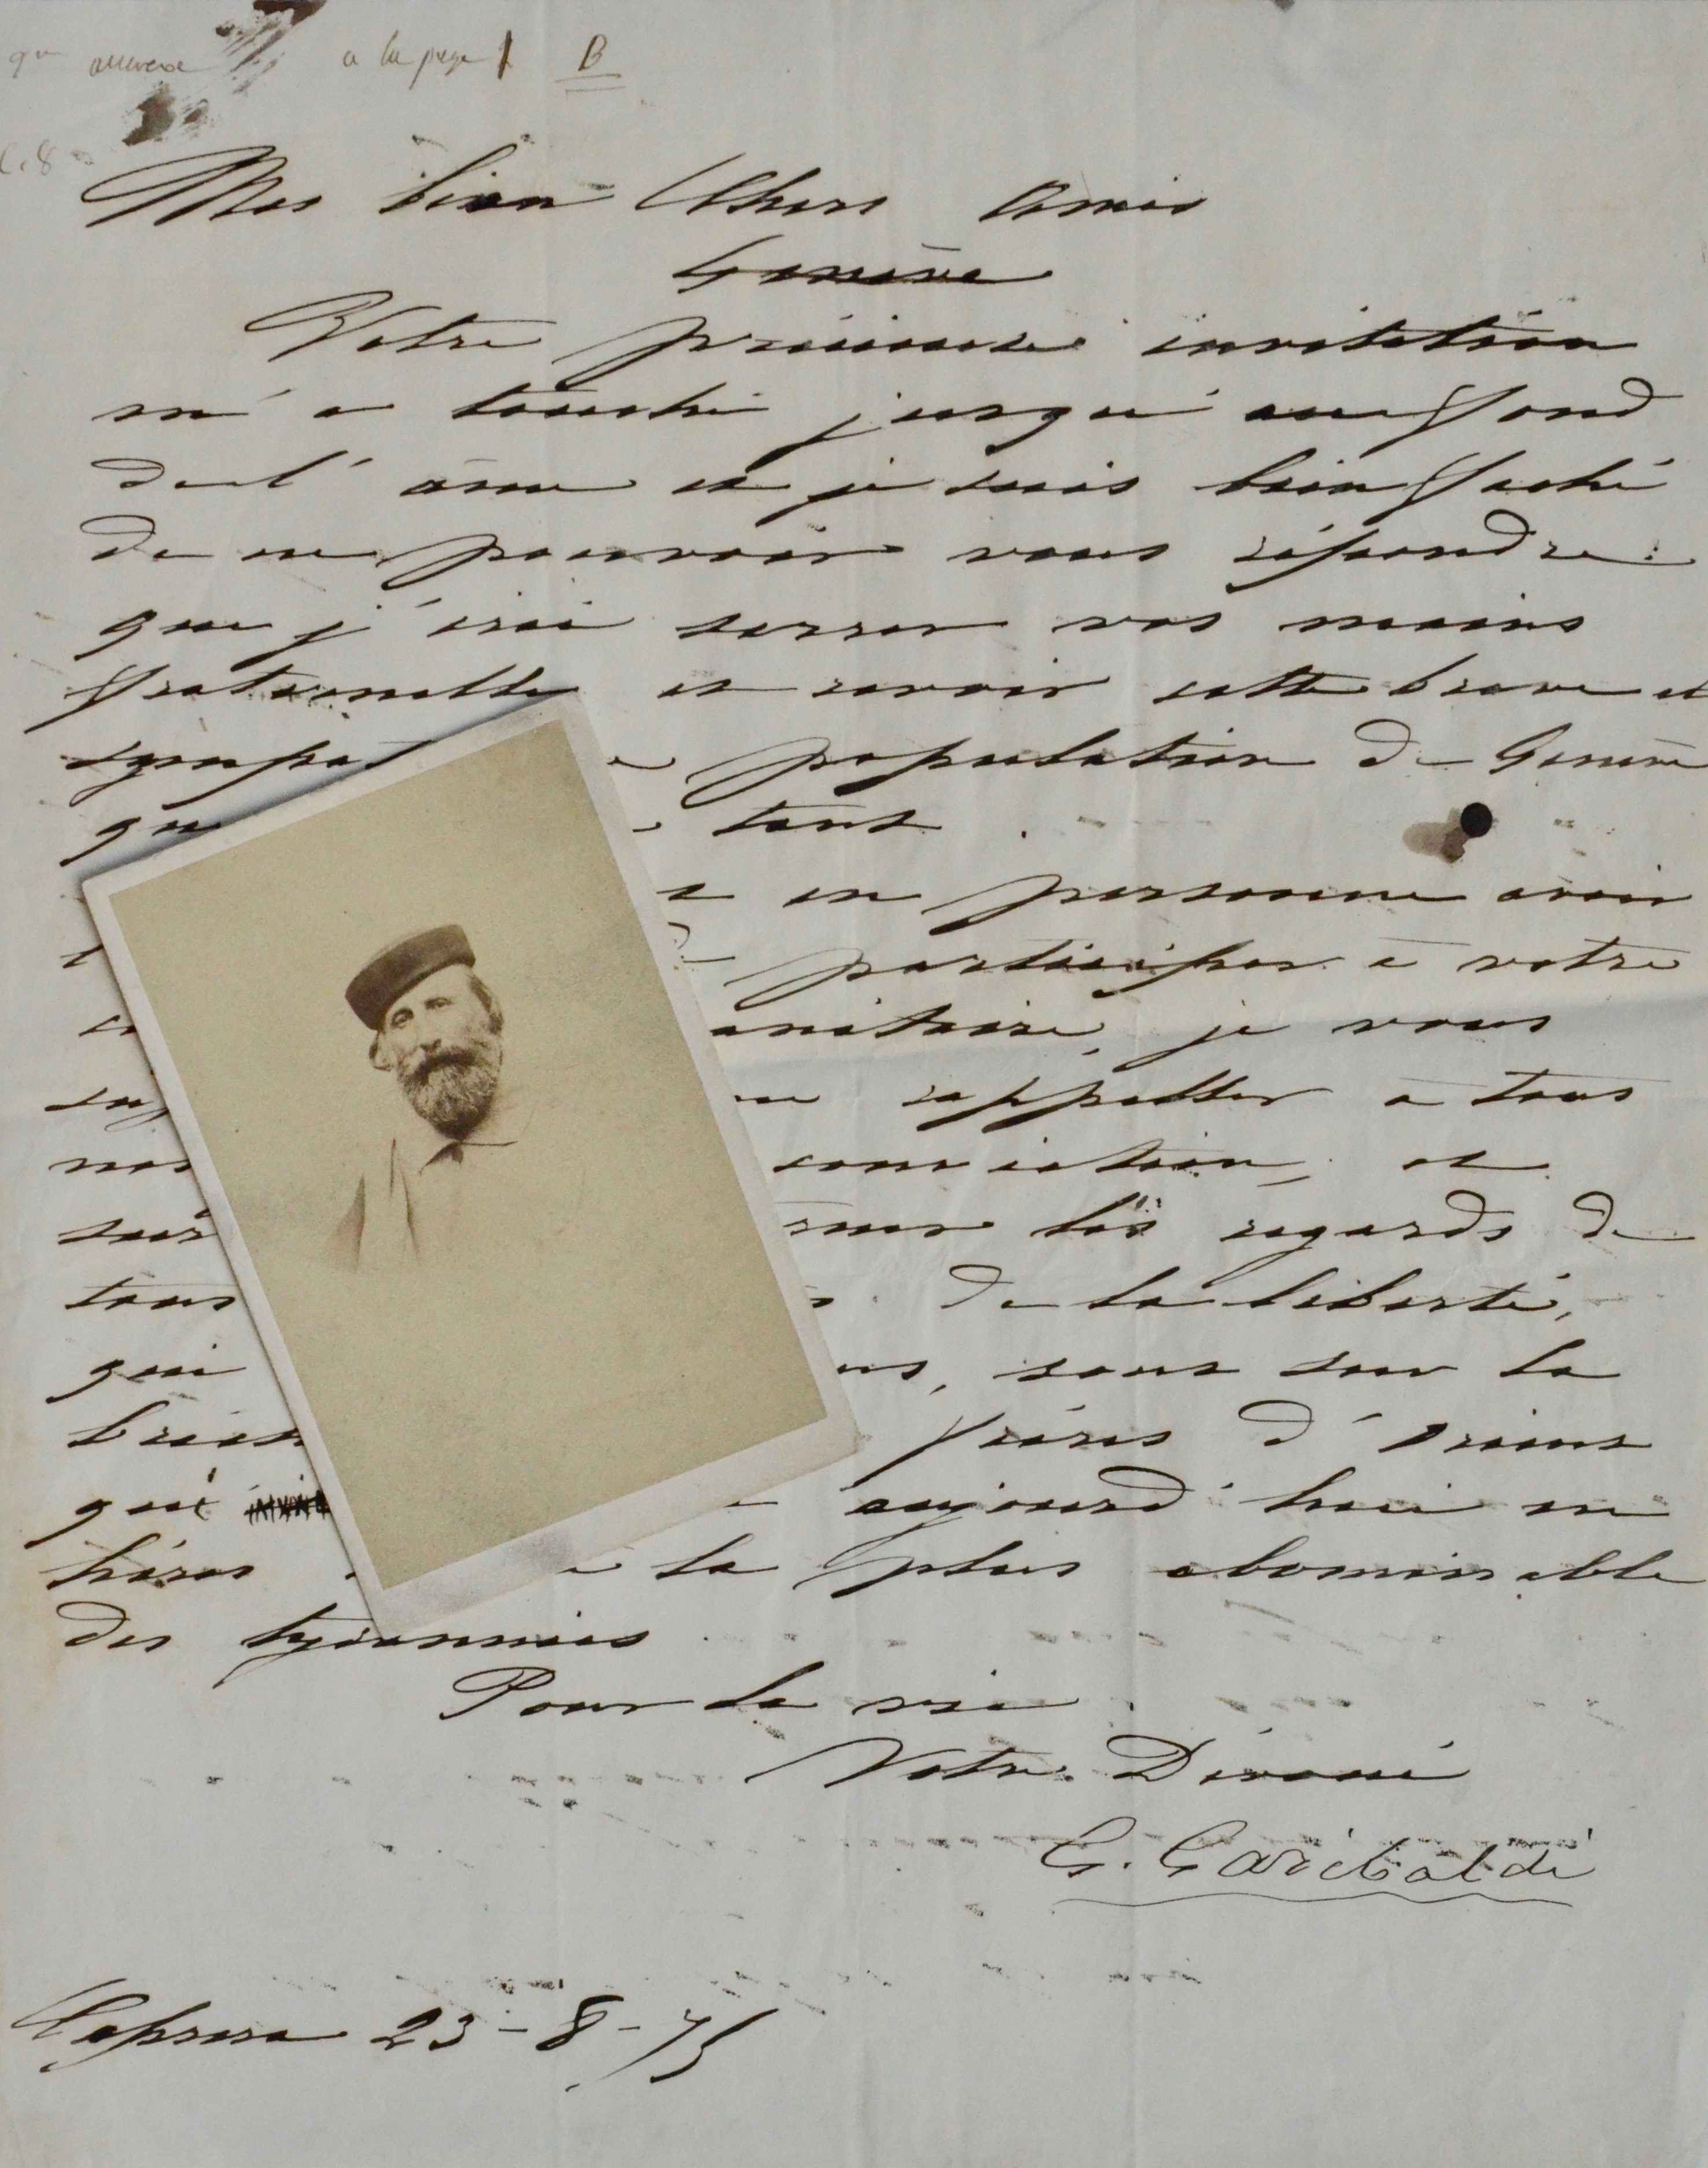 a la page 1 B
Mes bien Chers Amis
Genève
Votre précieuse invitation
m'a touché jusqu'au fond
de l'âme et je suis bien faché
de ne pouvoir vous répondre:
que j'irai serrer vos mains
fraternelles et revoir cette brave et
sympat population de Genève
tant
en personne avoir
participer à votre
anitaire, je vous
rappeller à tous
nos conviction, et
sur les regards de
tous de la liberté,
qui sont sur la
frères d'orient
qui aujourd'hui en
héros la plus abominable
des tyrannies
Pour la vie
Votre Dévoué
G. Garibaldi
Caprera 23-8-75